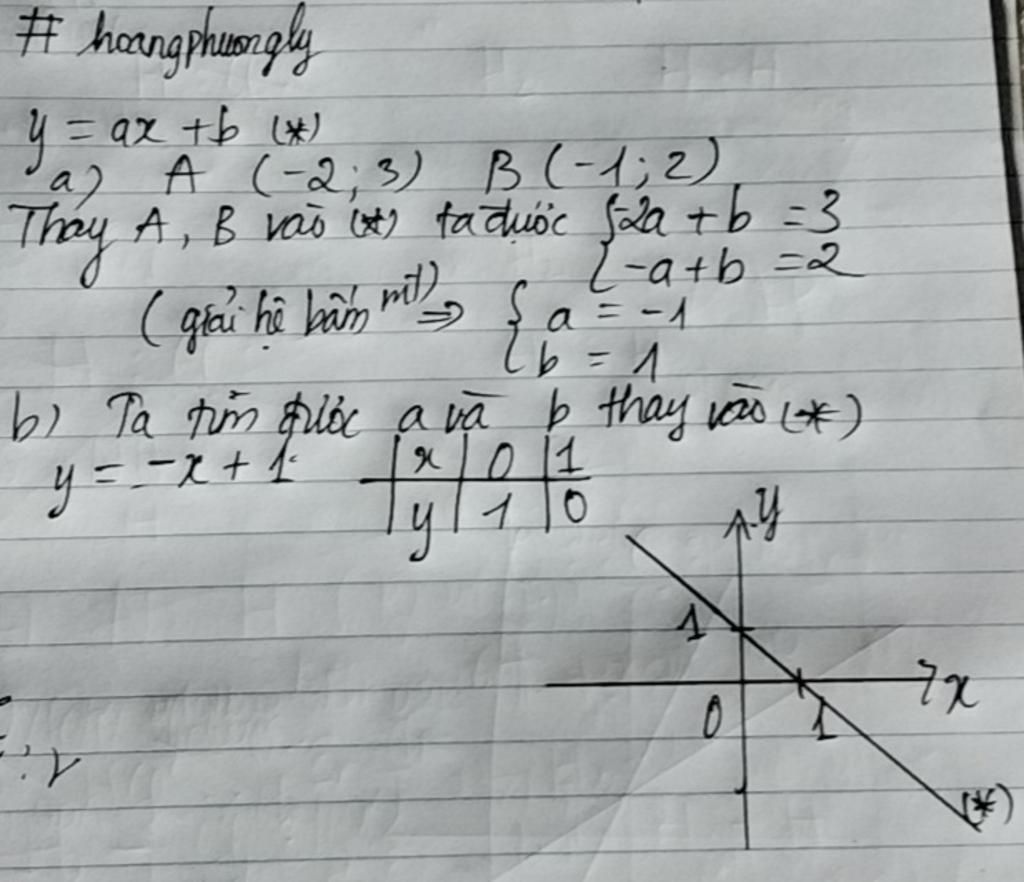 # hoangphuongly
y = ax + b (*)
a) A (-2; 3) B (-1; 2)
Thay A, B vào (*) ta được { -2a + b = 3
{ -a + b = 2
(giải hệ bấm mt) => { a = -1
{ b = 1
b) Ta tìm được a và b thay vào (*)
y = -x + 1 | x | 0 | 1
| y | 1 | 0
y
1
x
0 1
(*)